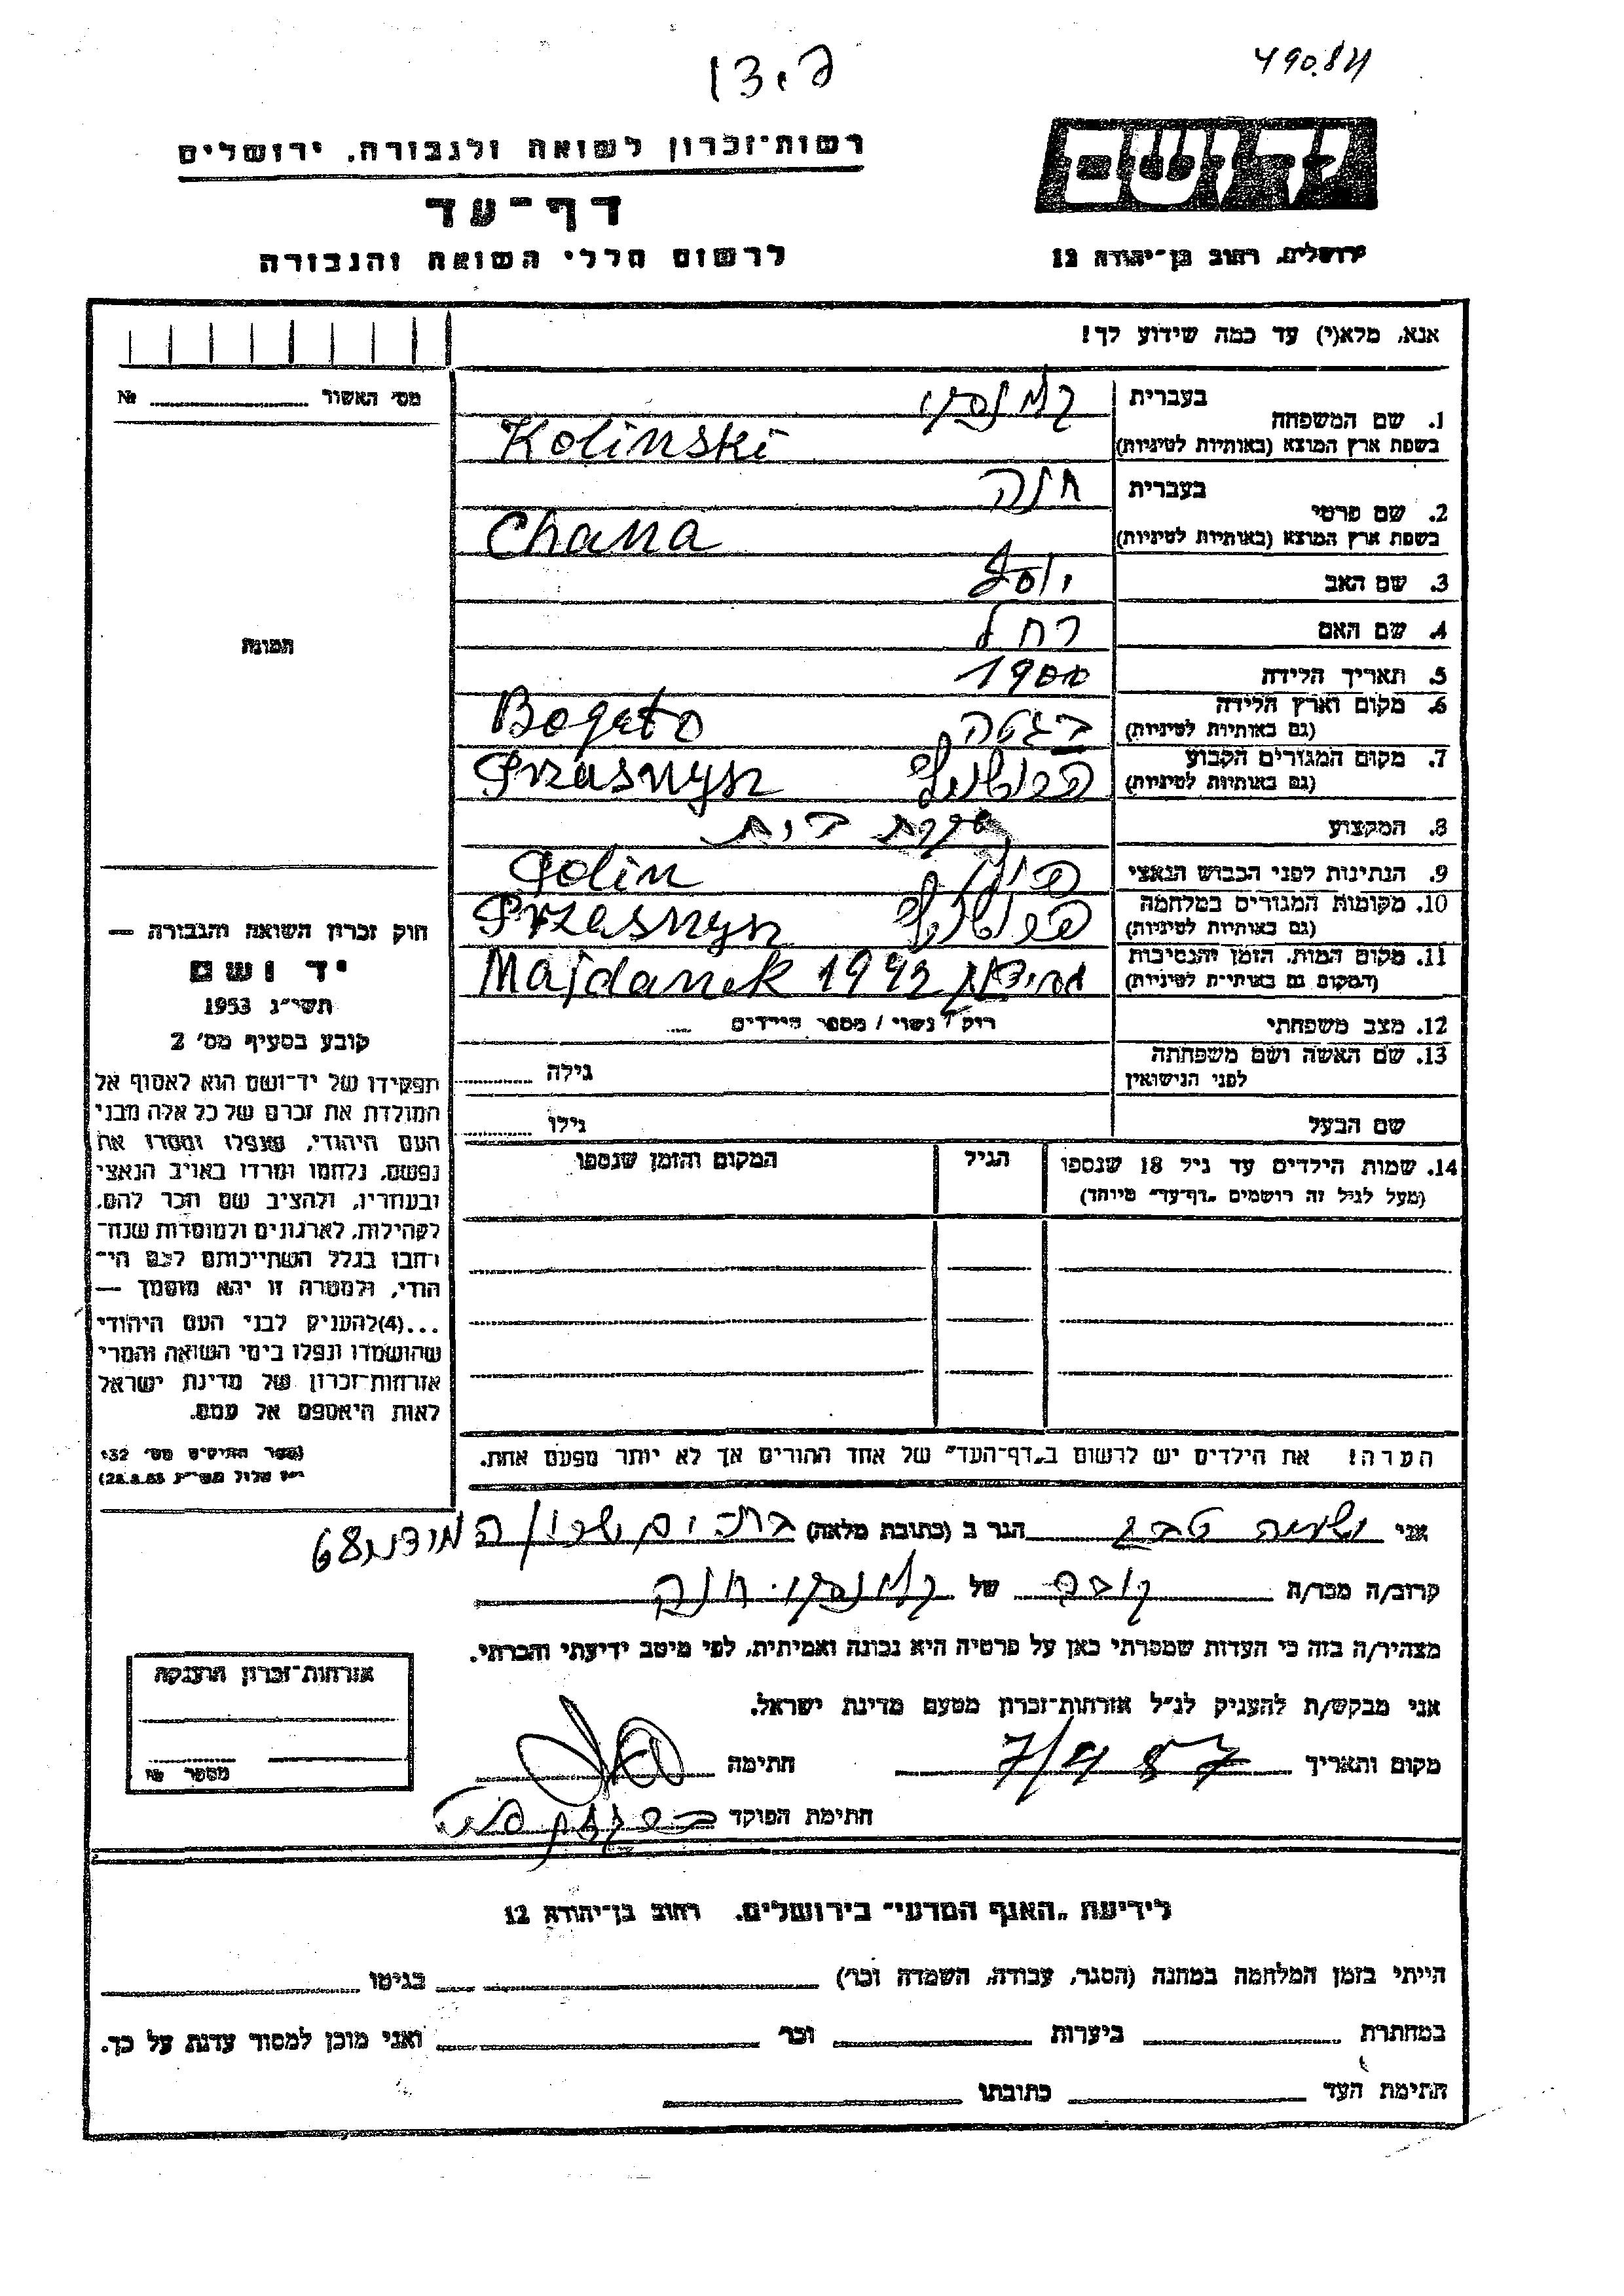 ד.צן
490.84
רשות־זכרון לשואה ולגבורה, ירושלים
דף־עד
לרשום חללי השואה והגבורה
יד ושם
ירושלים, רחוב בן־יהודה 12
אנא, מלא(י) עד כמה שידוע לך!
מס' האשור №
1. שם המשפחה בעברית קולינסקי
בשפת ארץ המוצא (באותיות לטיניות) Kolinski
2. שם פרטי בעברית חנה
בשפת ארץ המוצא (באותיות לטיניות) Chana
3. שם האב יוסף
4. שם האם רחל
5. תאריך הלידה 1900
6. מקום וארץ הלידה (גם באותיות לטיניות) בגטה Bogato
7. מקום המגורים הקבוע (גם באותיות לטיניות) Przasnysz
8. המקצוע עקרת בית
9. הנתינות לפני הכבוש הנאצי פולין Polin
10. מקומות המגורים במלחמה (גם באותיות לטיניות) Przasnysz
11. מקום המות, הזמן והנסיבות (המקום גם באותיות לטיניות) מיידנק Majdanek 1942
12. מצב משפחתי רוק / נשוי / מספר הילדים
13. שם האשה ושם משפחתה לפני הנישואין גילה
שם הבעל גילו
14. שמות הילדים עד גיל 18 שנספו
(מעל לגיל זה רושמים "דף־עד" מיוחד)
הגיל
המקום והזמן שנספו
הערה! את הילדים יש לרשום ב"דף־העד" של אחד ההורים אך לא יותר מפעם אחת.
תמונה
חוק זכרון השואה והגבורה —
יד ושם
תשי"ג 1953
קובע בסעיף מס' 2
תפקידו של יד־ושם הוא לאסוף אל
המולדת את זכרם של כל אלה מבני
העם היהודי, שנפלו ומסרו את
נפשם, נלחמו ומרדו באויב הנאצי
ובעוזריו, ולהציב שם וזכר להם,
לקהילות, לארגונים ולמוסדות שנח־
רחבו בגלל השתייכותם לעם הי־
הודי, ולמטרה זו יהא מוסמך —
...(4)להעניק לבני העם היהודי
שהושמדו ונפלו בימי השואה והמרי
אזרחות־זכרון של מדינת ישראל
לאות היאספם אל עמם.
(ספר החוקים מס' 132
י"ז אלול תשי"ג 28.8.53)
אני ישעיה הגר ב (כתובת מלאה) בת ים 68
קרוב/ה מכר/ה קרוב של קולינסקי חנה
מצהיר/ה בזה כי העדות שמסרתי כאן על פרטיה היא נכונה ואמיתית, לפי מיטב ידיעתי והכרתי.
אני מבקש/ת להעניק לנ"ל אזרחות־זכרון מטעם מדינת ישראל.
מקום ותאריך 7/4 87 חתימה
חתימת הפוקד
אזרחות־זכרון הוענקה
מספר №
לידיעת "האגף המדעי" בירושלים, רחוב בן־יהודה 12
הייתי בזמן המלחמה במחנה (הסגר, עבודה, השמדה וכו') בגיטו
במחתרת ביערות וכו' ואני מוכן למסור עדות על כך.
חתימת העד כתובתו